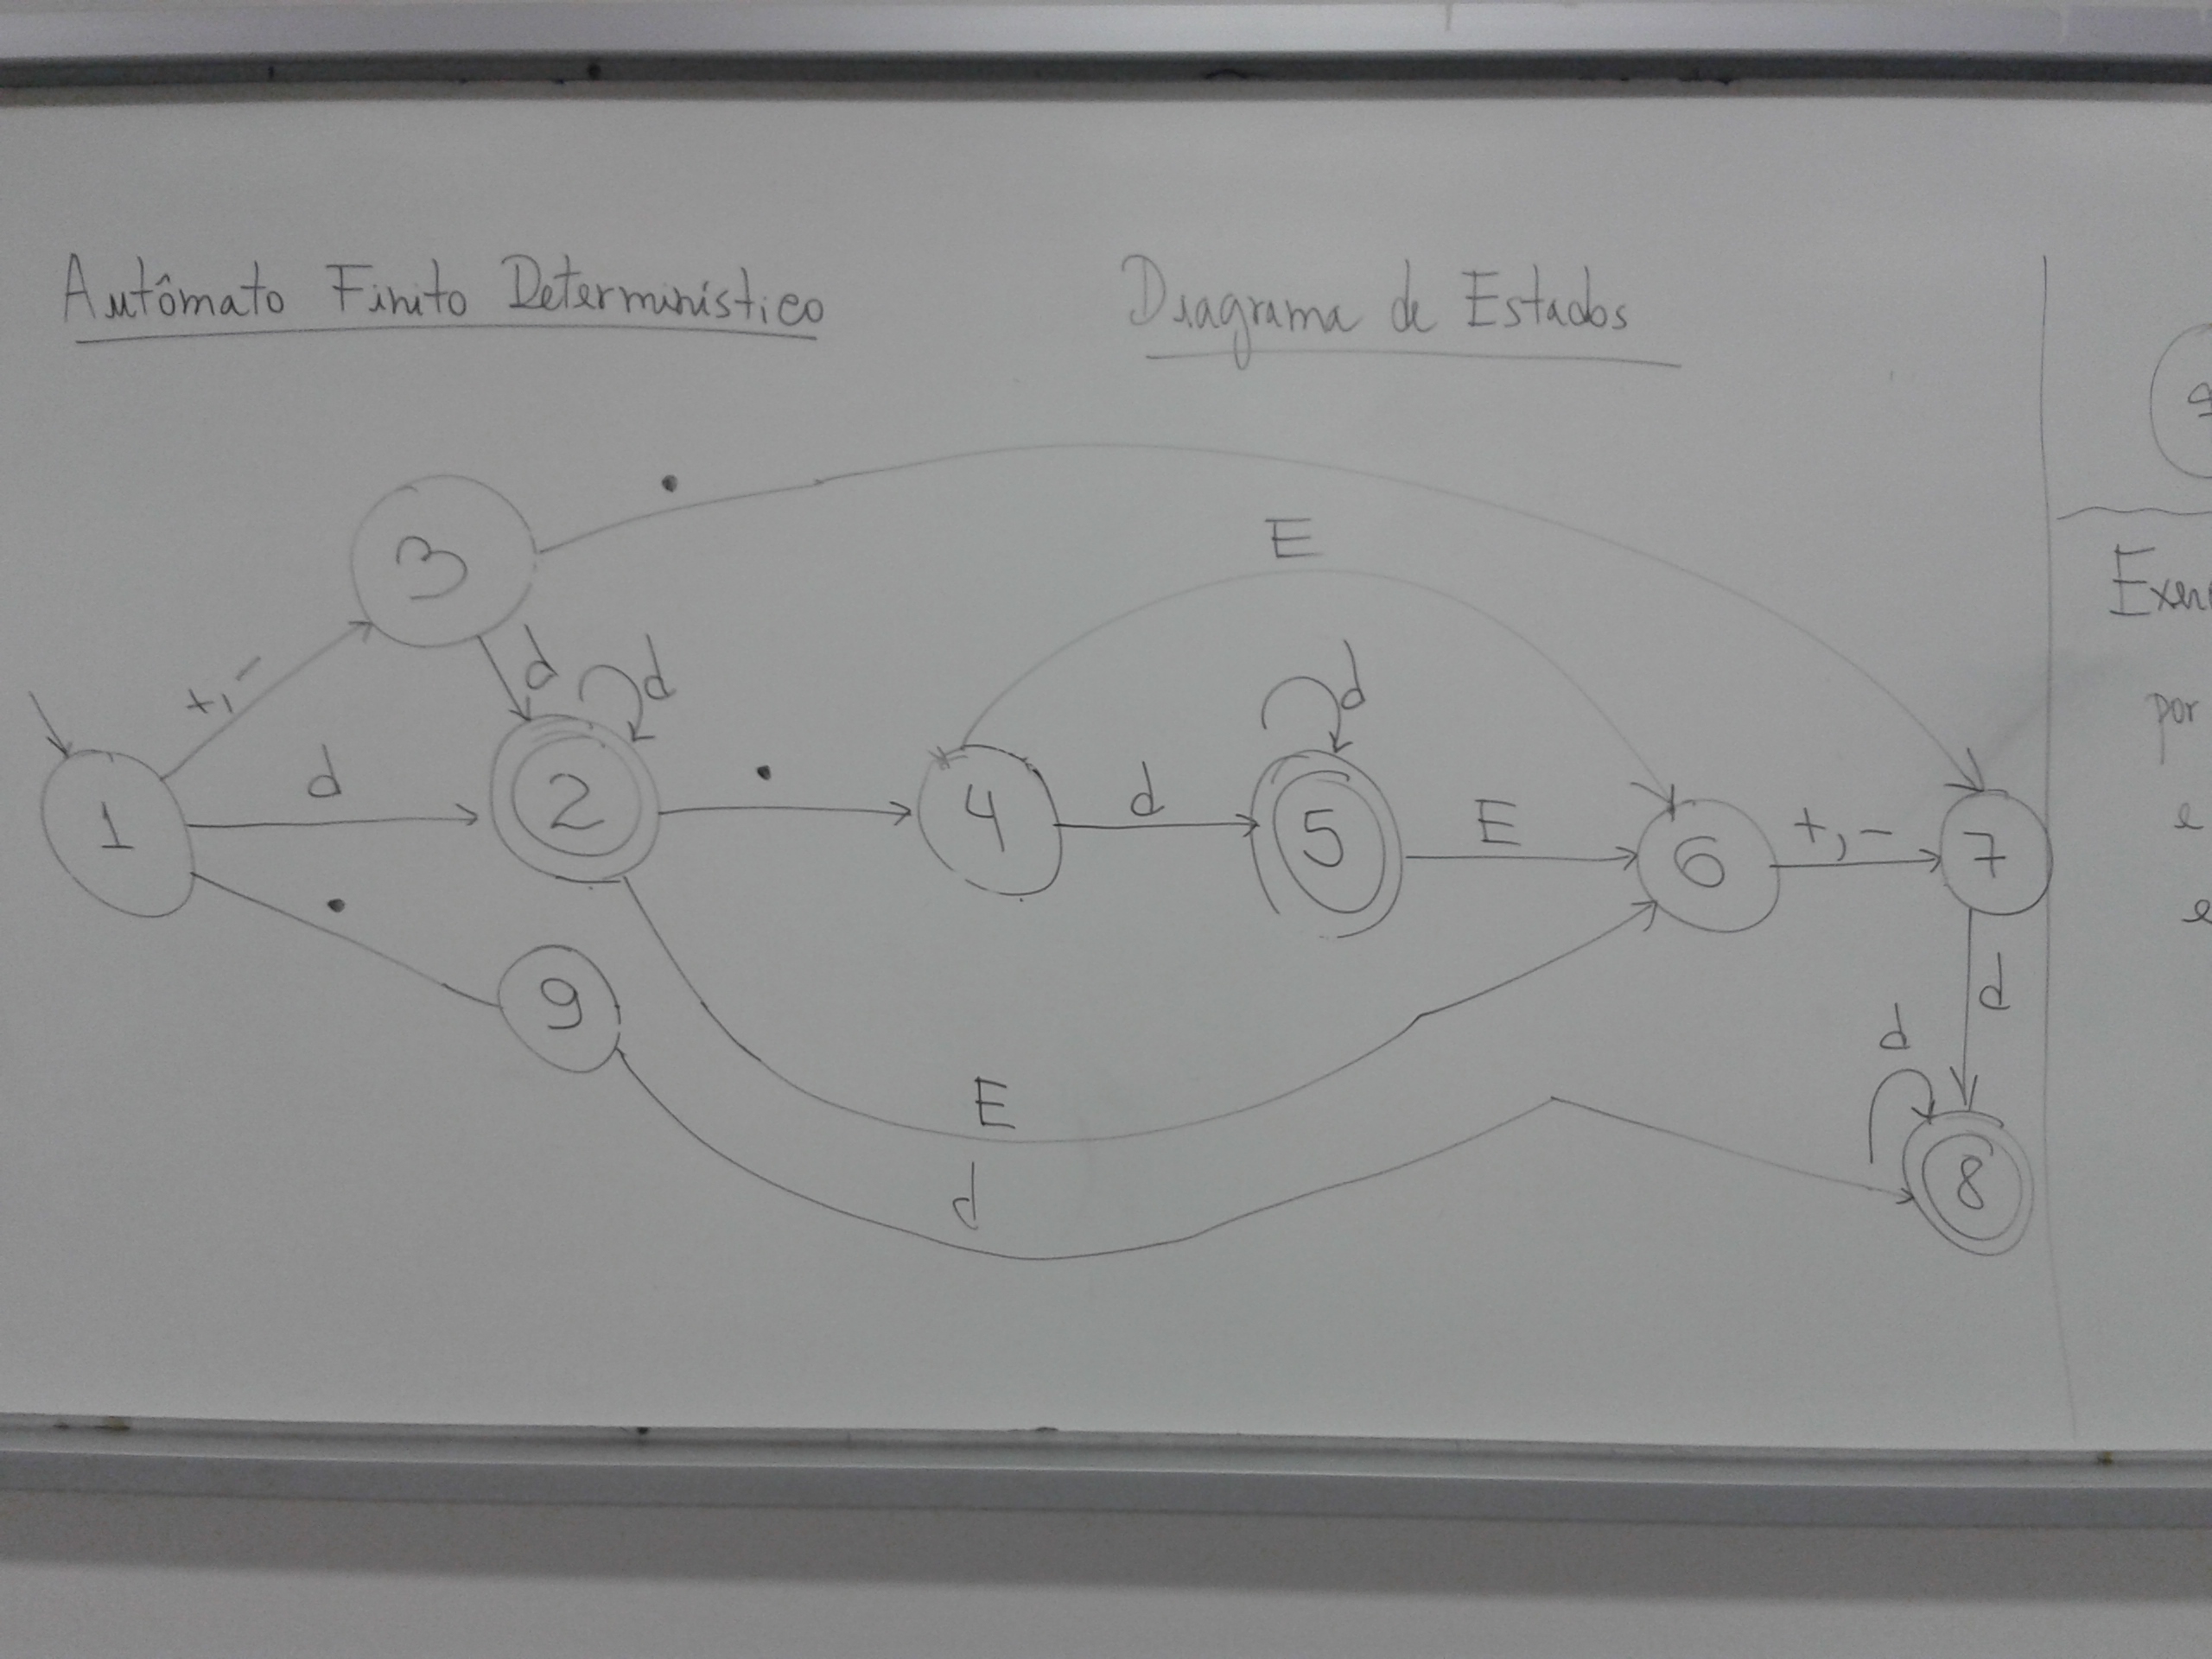 Autômato Finito Determinístico
Diagrama de Estados
.
E
3
+,-
d
d
d
d
1
2
.
4
d
5
E
6
+,-
7
.
9
d
d
E
d
8
por
e
e